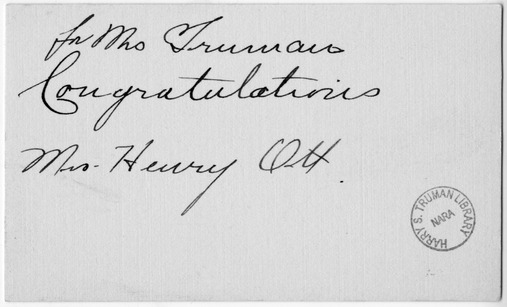 for Mrs Truman
Congratulations
Mrs. Henry Ott.
HARRY S. TRUMAN LIBRARY
NARA